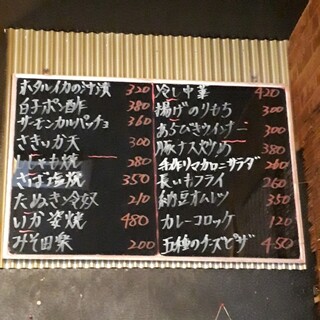 ホタルイカの沖漬 320
白子ポン酢 380
サーモンカルパッチョ 360
さきいか天 300
ししゃも焼 280
さば塩焼 350
たぬき冷奴 210
いか姿焼 480
みそ田楽 200
冷し中華 420
揚げのりもち 300
あらびきウインナー 300
豚ナス炒め 380
手作りマカロニサラダ 260
長いもフライ 260
納豆オムレツ 350
カレーコロッケ 120
五種のチーズピザ 450